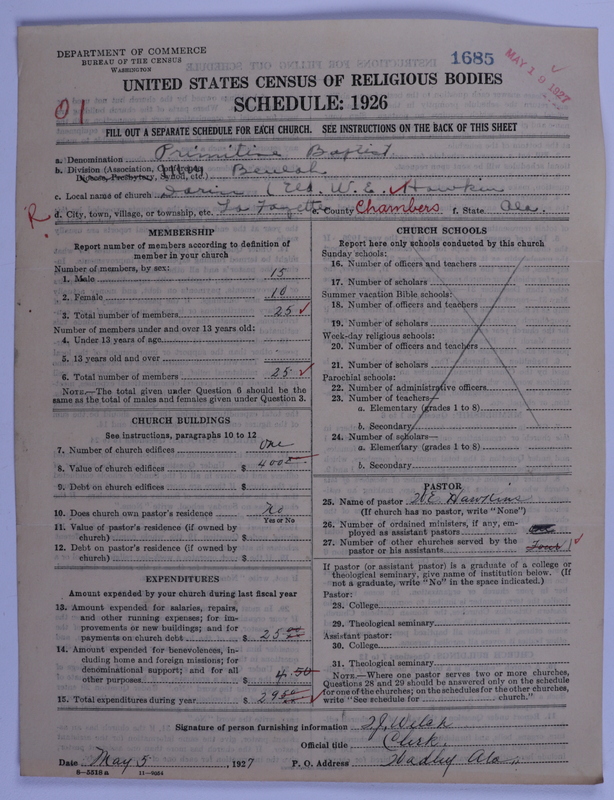 DEPARTMENT OF COMMERCE
BUREAU OF THE CENSUS
WASHINGTON
1685
MAY 19 1927
UNITED STATES CENSUS OF RELIGIOUS BODIES
SCHEDULE: 1926
01
FILL OUT A SEPARATE SCHEDULE FOR EACH CHURCH. SEE INSTRUCTIONS ON THE BACK OF THIS SHEET
a. Denomination Primitive Baptist
b. Division (Association, Conference, Diocese, Presbytery, Synod, etc.) Beulah
c. Local name of church (Eld. W. E. Hawkins
R
d. City, town, village, or township, etc. La Fayette e. County Chambers f. State Ala.
MEMBERSHIP
Report number of members according to definition of member in your church
Number of members, by sex:
1. Male 15
2. Female 10
3. Total number of members 25
Number of members under and over 13 years old:
4. Under 13 years of age
5. 13 years old and over
6. Total number of members 25
NOTE.—The total given under Question 6 should be the same as the total of males and females given under Question 3.
CHURCH BUILDINGS
See instructions, paragraphs 10 to 12
7. Number of church edifices One
8. Value of church edifices $ 400
9. Debt on church edifices $
10. Does church own pastor's residence No
Yes or No
11. Value of pastor's residence (if owned by church) $
12. Debt on pastor's residence (if owned by church) $
EXPENDITURES
Amount expended by your church during last fiscal year
13. Amount expended for salaries, repairs, and other running expenses; for improvements or new buildings; and for payments on church debt $ 25
14. Amount expended for benevolences, including home and foreign missions; for denominational support; and for all other purposes $ 4.50
15. Total expenditures during year $ 29 50
CHURCH SCHOOLS
Report here only schools conducted by this church
Sunday schools:
16. Number of officers and teachers
17. Number of scholars
Summer vacation Bible schools:
18. Number of officers and teachers
19. Number of scholars
Week-day religious schools:
20. Number of officers and teachers
21. Number of scholars
Parochial schools:
22. Number of administrative officers
23. Number of teachers—
a. Elementary (grades 1 to 8)
b. Secondary
24. Number of scholars—
a. Elementary (grades 1 to 8)
b. Secondary
PASTOR
25. Name of pastor W E Hawkins
(If church has no pastor, write "None")
26. Number of ordained ministers, if any, employed as assistant pastors
27. Number of other churches served by the pastor or his assistants Four 1
If pastor (or assistant pastor) is a graduate of a college or theological seminary, give name of institution below. (If not a graduate, write "No" in the space indicated.)
Pastor:
28. College
29. Theological seminary
Assistant pastor:
30. College
31. Theological seminary
NOTE.—Where one pastor serves two or more churches, Questions 28 and 29 should be answered only on the schedule for one of the churches; on the schedules for the other churches, write "See schedule for church."
Signature of person furnishing information J. Welch
Official title Clerk.
Date May 5, 1927 P. O. Address Wadley Ala.
8—5518 a 11—9054